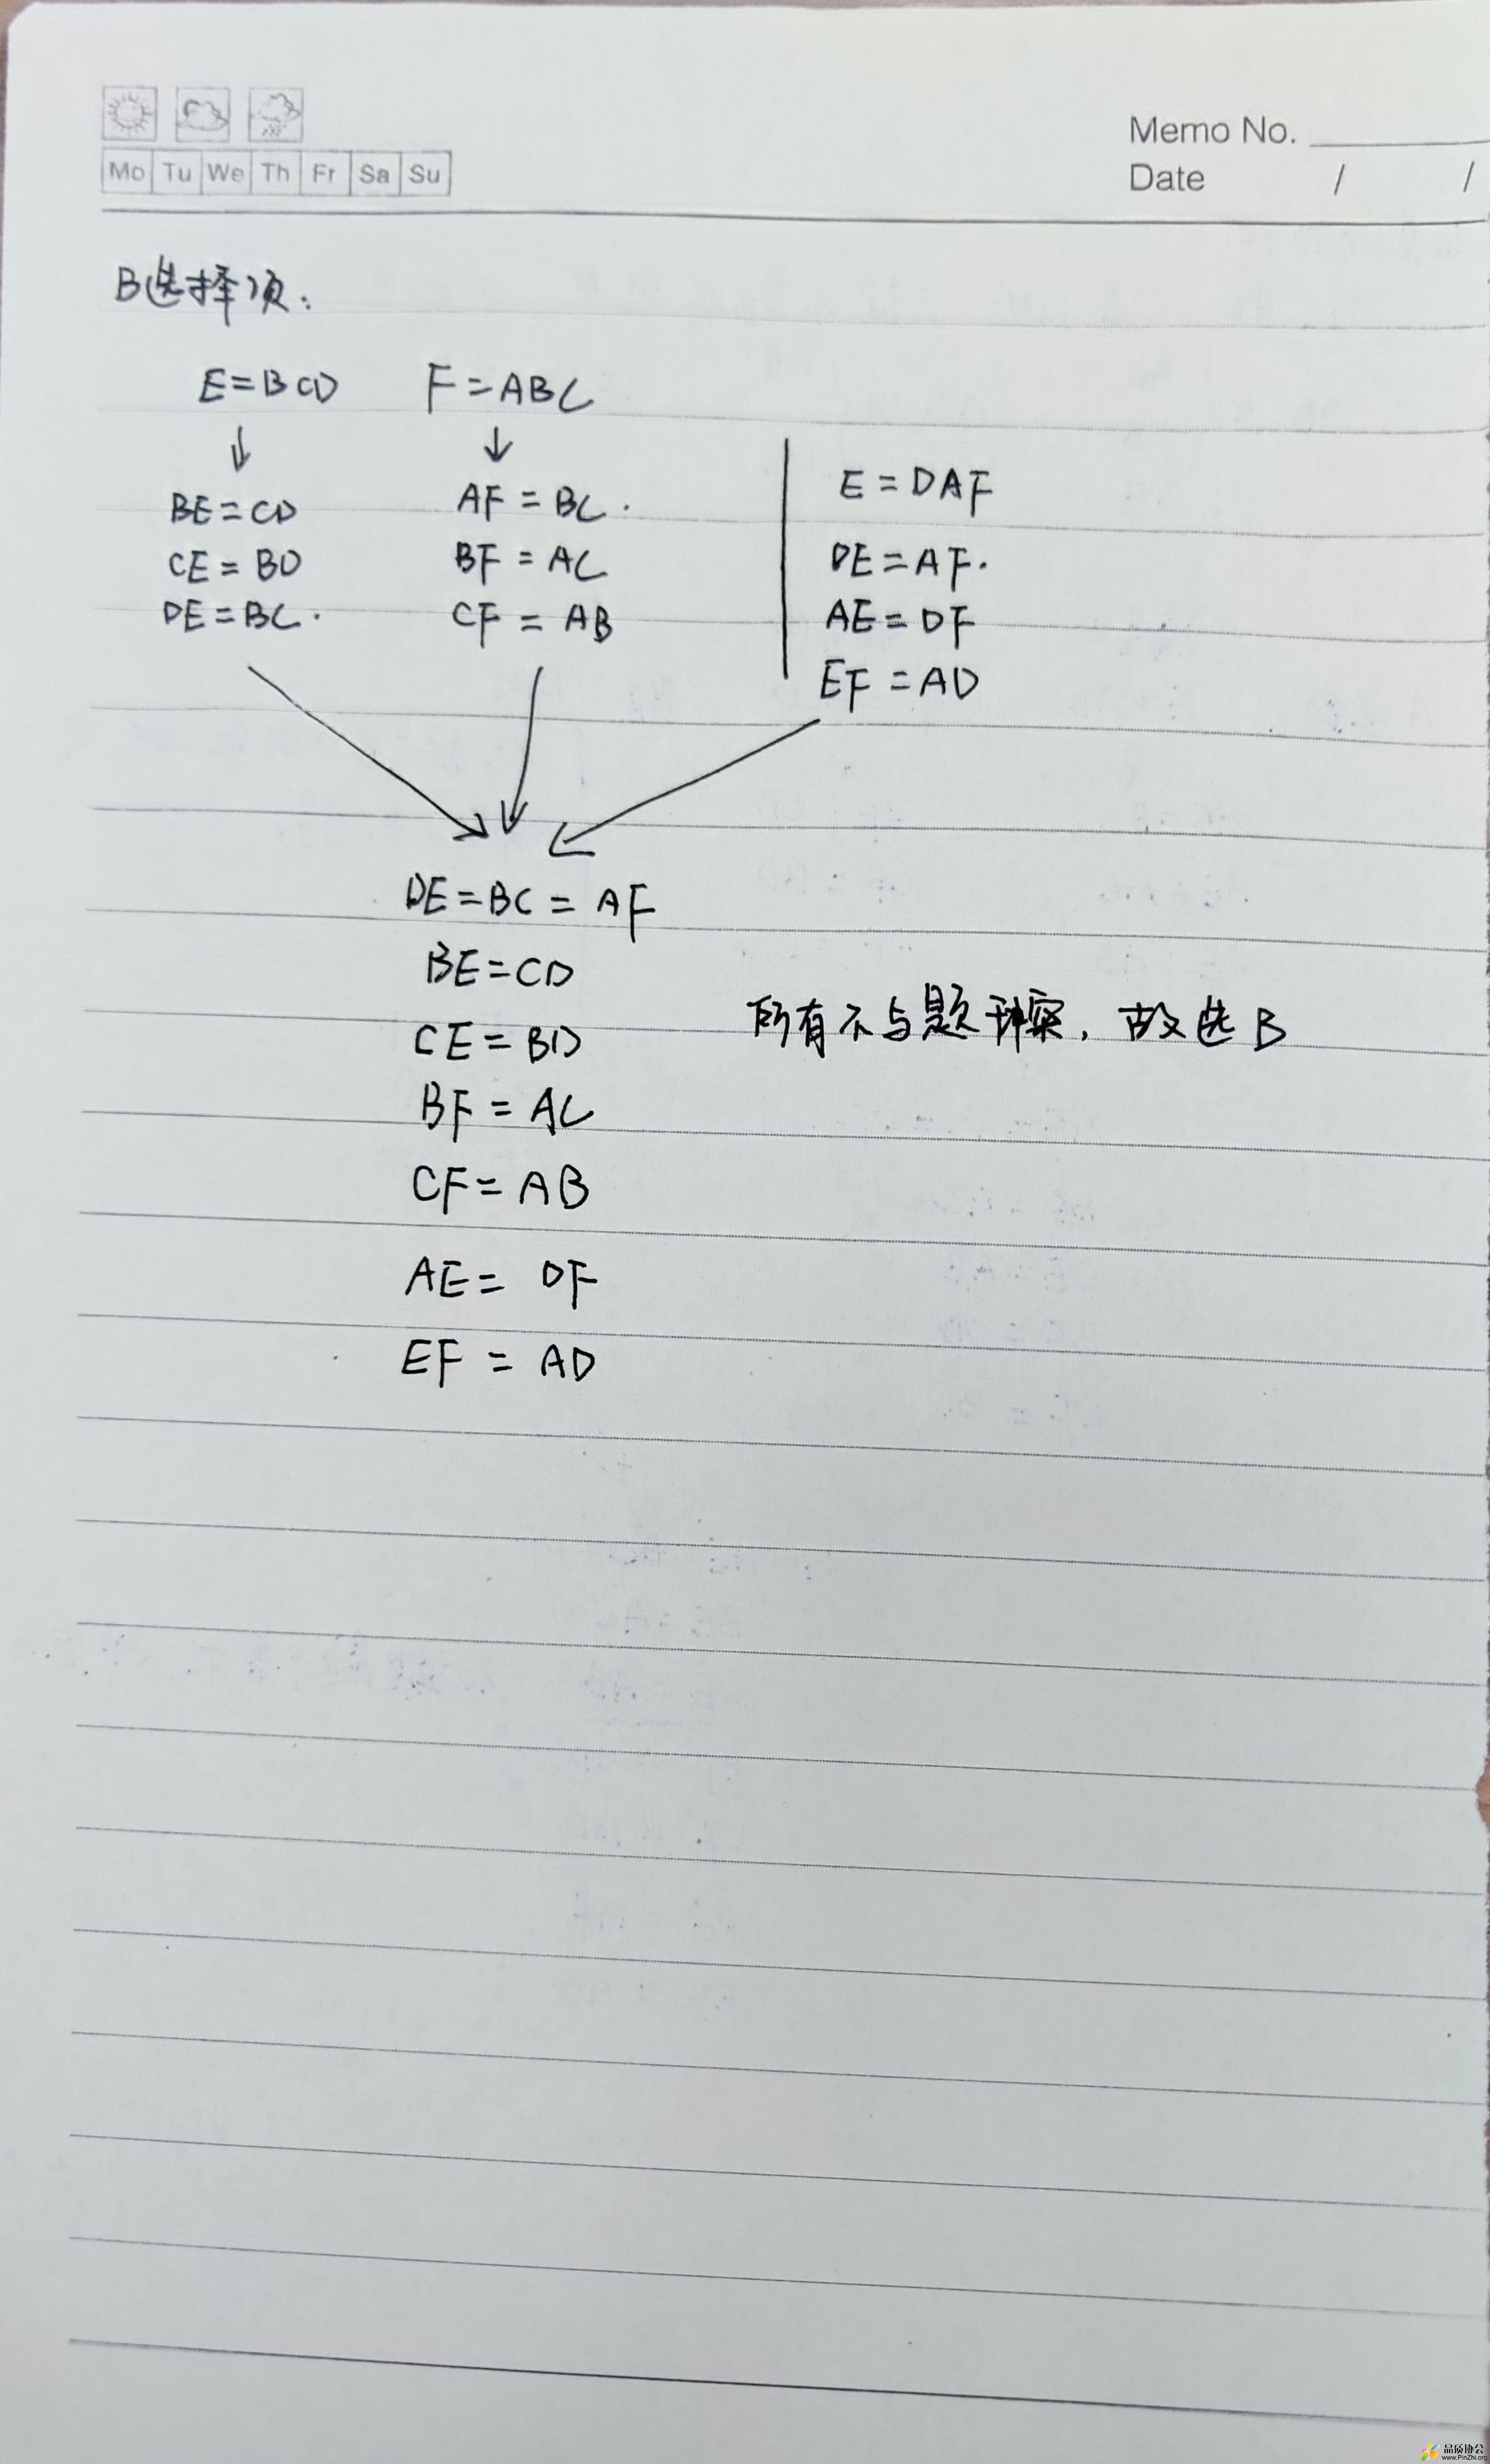 Memo No.
Mo Tu We Th Fr Sa Su
Date / /
B选择项:
E=BCD F=ABC
↓ ↓
BE=CD
CE=BD
DE=BC.
AF=BC.
BF=AC
CF=AB
E=DAF
DE=AF.
AE=DF
EF=AD
DE=BC=AF
BE=CD
CE=BD
BF=AC
CF=AB
AE=DF
EF=AD
所有不与题干, 故选B
品质协会
www.PinZhi.org